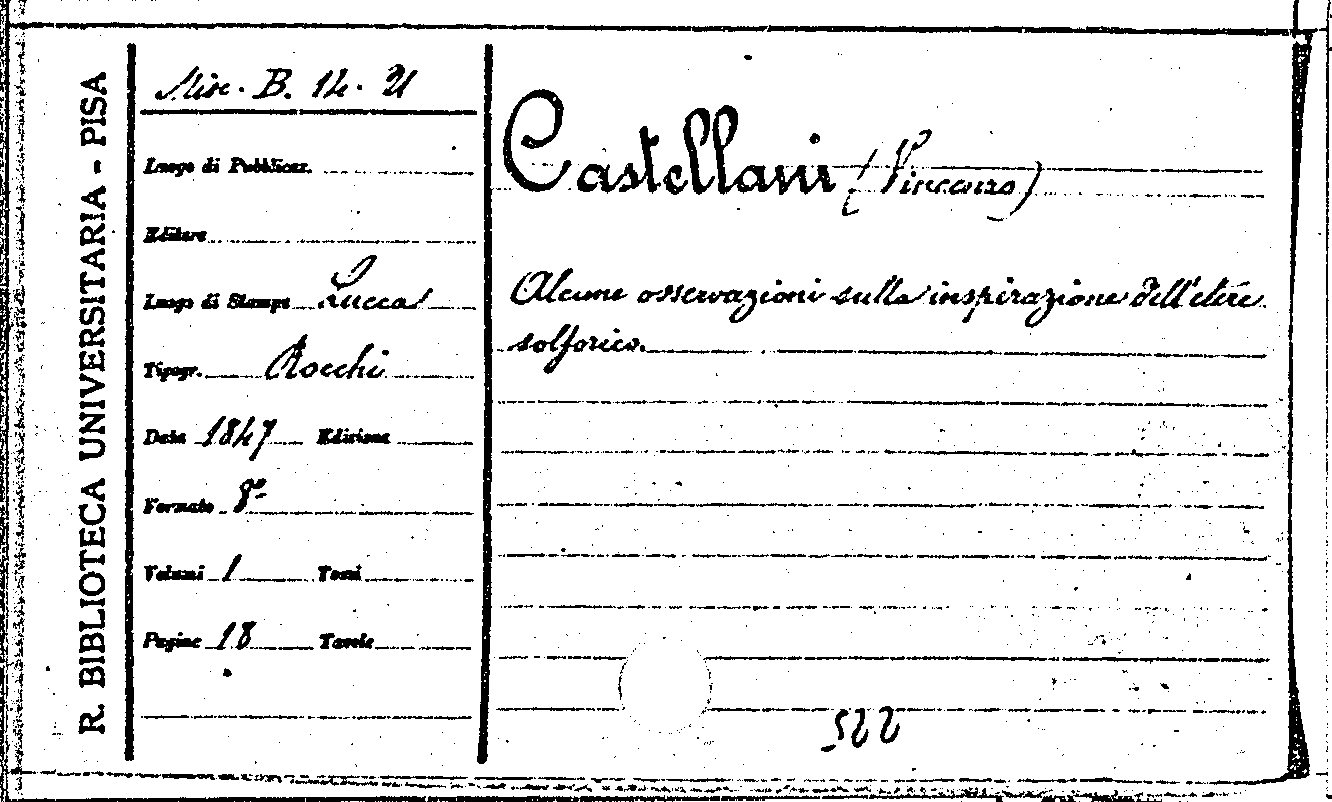 R. BIBLIOTECA UNIVERSITARIA - PISA
Misc. B. 14. 21
Luogo di Pubblicaz.
Editore
Luogo di Stampa Lucca
Tipogr. Rocchi
Data 1847 Edizione
Formato 8º
Volumi 1 Tomi
Pagine 18 Tavole
Castellani (Vincenzo)
Alcune osservazioni sulla inspirazione dell'etere
solforico.
522